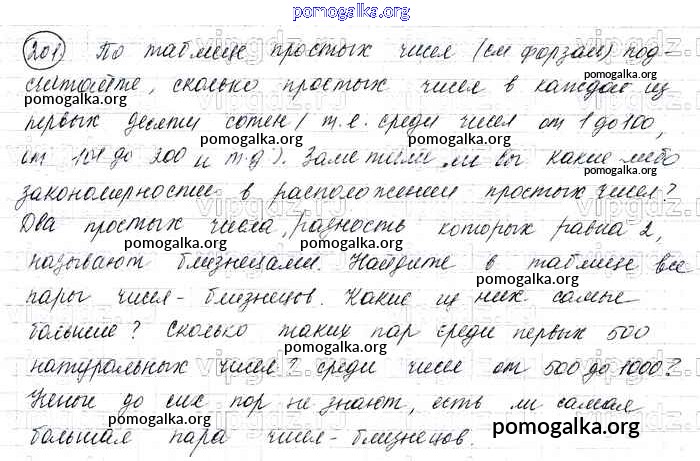 pomogalka.org
201 По таблице простых чисел (см форзац) под-
считайте, сколько простых чисел в каждой из
pomogalka.org pomogalka.org
первых десяти сотен (т.е. среди чисел от 1 до 100,
pomogalka.org pomogalka.org
от 101 до 200 и т.д.). Заметили ли вы какие либо
pomogalka.org
закономерности в расположении простых чисел?
Два простых числа, разность которых равна 2,
pomogalka.org pomogalka.org
называют близнецами. Найдите в таблице все
pomogalka.org
пары чисел-близнецов. Какие из них самые
большие? Сколько таких пар среди первых 500
pomogalka.org
натуральных чисел? среди чисел от 500 до 1000?
pomogalka.org
до сих пор не знают, есть ли самая
pomogalka.org
большая пара чисел-близнецов.
pomogalka.org